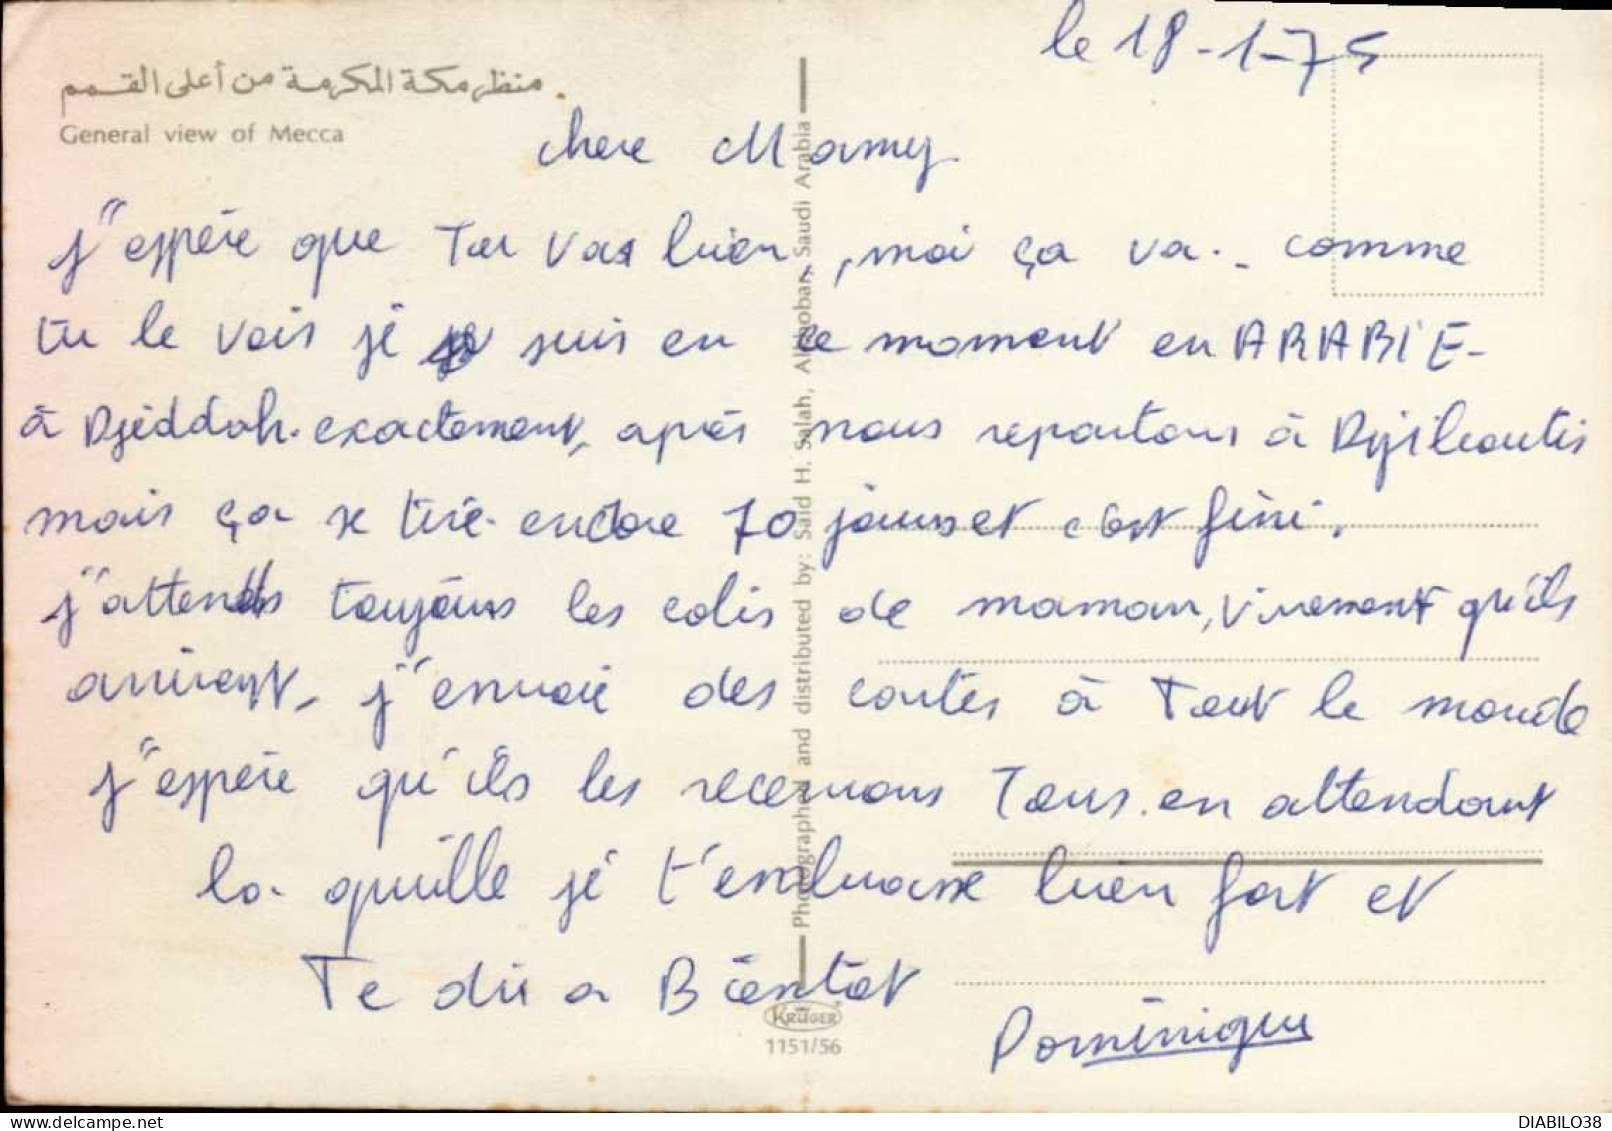 le 18-1-75
منظر مكة المكرمة من أعلى القمم .
General view of Mecca
chere Mamy
j'espére que Tu vas bien, moi ça va.. comme
tu le vois je suis en ce moment en ARABIE-
à Djeddah. exactement, après nous repartons à Djiboutis
mais ça se tire. encore 70 jours et c'est fini.
j'attends toujours les colis de maman, vivement qu'ils
arrivent, j'envoie des cartes à Tout le monde
j'espére qu'ils les recevrons Tous. en attendant
la quille je t'embrasse bien fort et
Te dis a Bientôt
Dominique
Photographed and distributed by: Said H. Salah, Alkhobar, Saudi Arabia
KRÜGER
1151/56
DIABILO38